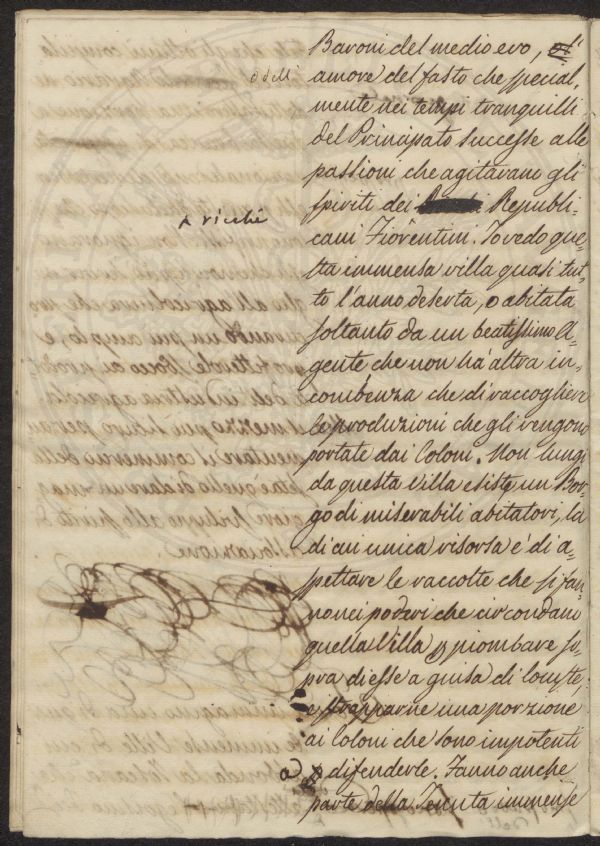 Baroni del medio evo, ol
o dell'
amore del fasto che special,
mente nei tempi tranquilli
del Principato successe alle
passioni che agitavano gli
spiriti dei Republi-
a ricchi
cani Fiorentini. Io vedo que-
sta immensa villa quasi tut-
to l'anno deserta, o abitata
soltanto da un beatissimo A-
gente che non ha altra in-
combenza che di raccogliere
le produzioni che gli vengono
portate dai Coloni. Non lungi
da questa Villa esiste un Bor-
go di miserabili abitatori, la
di cui unica risorsa e' di a-
spettare le raccolte che si fan-
no nei poderi che circondano
quella Villa piombare so-
pra di esse a guisa di locuste,
e strapparne una porzione
ai Coloni che sono impotenti
a difenderle. Fanno anche
parte della Tenuta immense